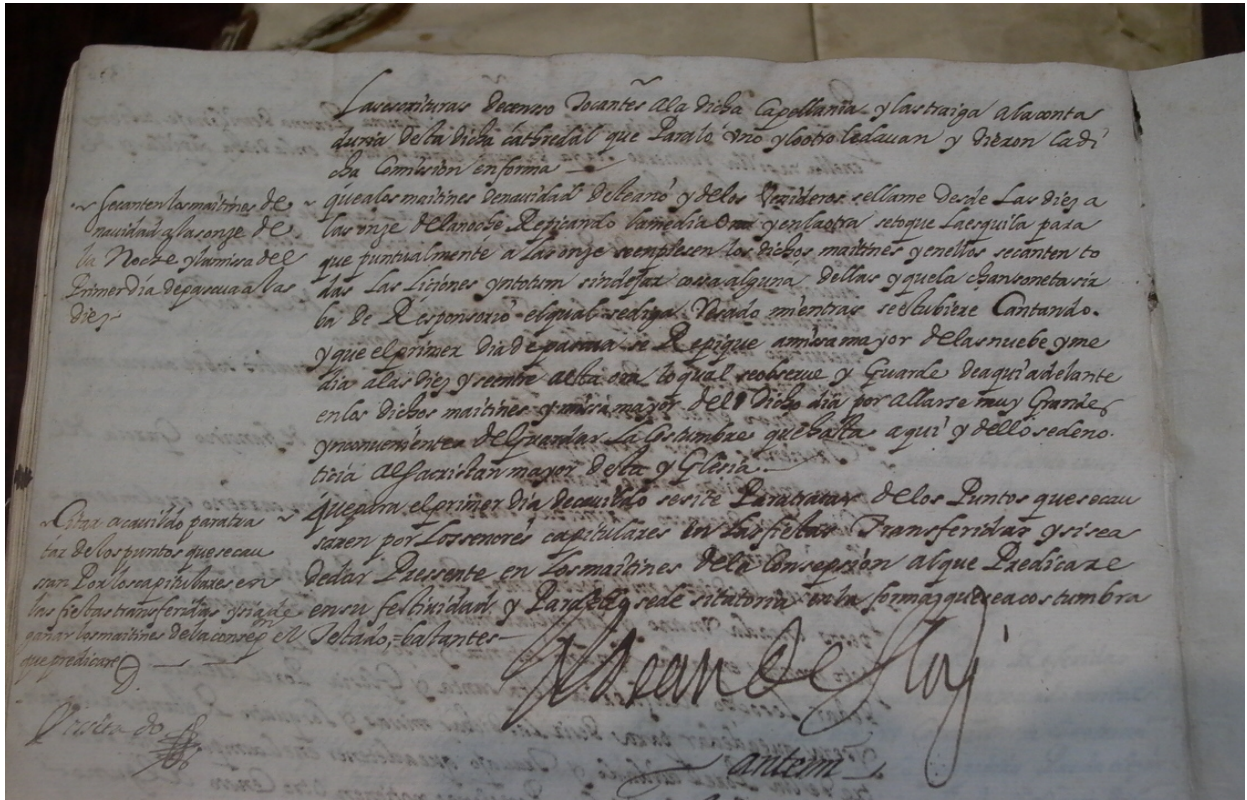 Las escrituras de censo tocantes a la dicha Capellania y las traiga a la conta
duria desta dicha cathedral que Para lo uno y lo otro le davan y dieron la di
cha Comission en forma
~ Se canten los maitines de
navidad a las onze de
la Noche y la missa del
Primer dia de pascua a las
diez
que a los maitines de navidad deste año y de los Venideros se llame desde Las diez a
las onze de la noche Repicando la media ora y en la otra se toque La esquila para
que puntualmente a las onze se empiesen los dichos maitines y en ellos se canten to
das Las Liciones yn totum sin dejar cossa alguna dellas y que la chansoneta sir
ba de Responsorio el qual se diga Resado mientras se estubiere Cantando.
y que el primer dia de pascua se Repique a missa mayor de las nuebe y me
dia a las diez y se entre a esta ora lo qual se observe y Guarde de aqui adelante
en los dichos maitines y missa mayor del dicho dia por allarse muy Grandes
ynconvenientes de Guardar La Costumbre que hasta aqui y dello se de no
ticia al sacristan mayor desta sta yGlesia.
~ Citar a cavildo para tra
tar de los puntos que se cau
san Por los capitulares en
las fiestas transferidas y si a de
ganar los maitines de la consepon el
que predicare
que para el primer dia de cavildo se site Para tratar de los Puntos que se cau
saren por Los señores capitulares en Las fiestas Transferidas y si se a
de dar Pressente en Los maitines de la Consepsion al que Predicare
en su festividad y Para ello se de sitatoria en la forma que se acostumbra
Testado,=bastantes
antemi